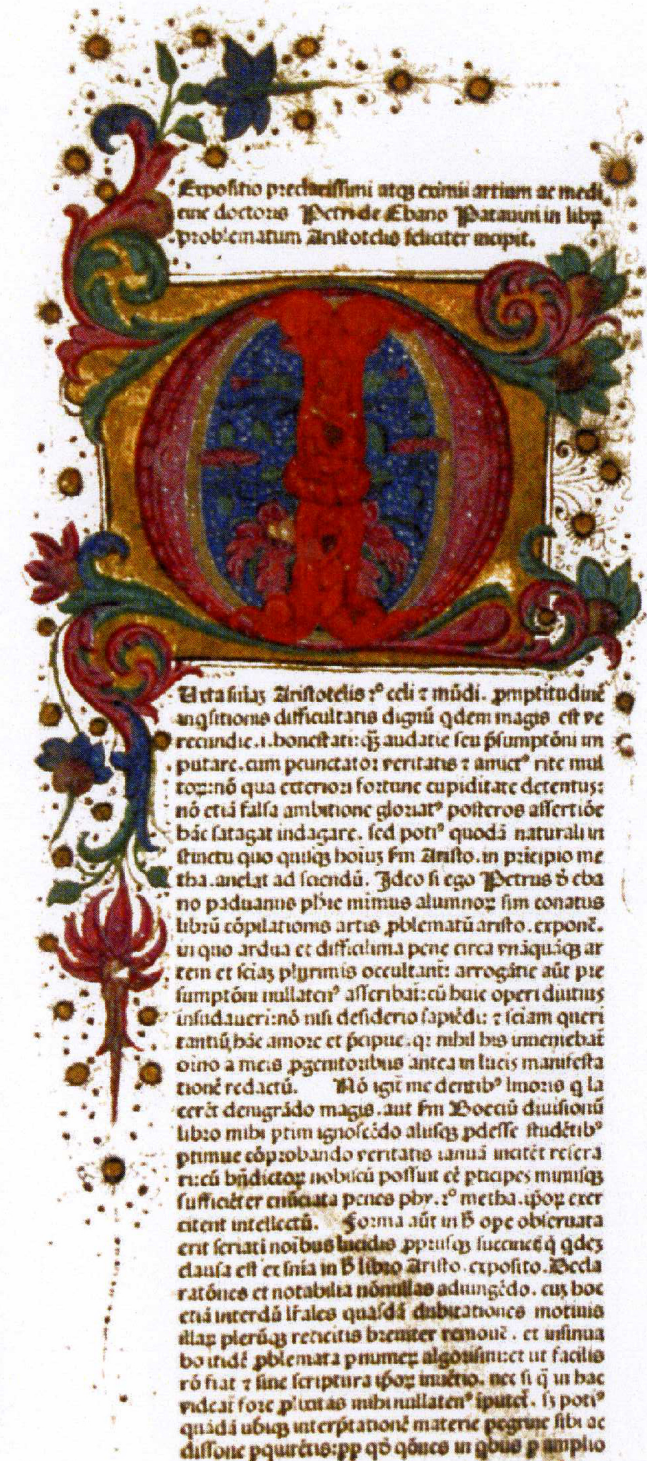 Expositio preclarissimi atqꝫ eximii artium ac medi
cine doctoris Petri de Ebano Patauini in libꝝ
problematum Aristotelis feliciter incipit.
I
Uxta sniaꝫ Aristotelis 2º celi ⁊ mūdi. ꝓmptitudinē
inqsitionis difficultatis dignū qdem magis est ve
recundie .i. honestati: qꝫ audatie seu p̄sumptōni im
putare. cum peunctator veritatis ⁊ amicꝰ rite mul
toꝝ: nō qua exteriori fortune cupiditate detentus:
nō etiā falsa ambitione gloriatꝰ posteros assertiōe
hāc satagat indagare. sed potiꝰ quodā naturali in
stinctu quo quisqꝫ hoiuꝫ fm Aristo. in pricipio me
tha. anelat ad sciendū. Ideo si ego Petrus ď eba
no paduanus phie minimus alumnoꝝ sim conatus
librū cōpilationis artis ꝓblematū aristo. exponē.
in quo ardua et difficilima pene circa vnāquāqꝫ ar
tem et sciaꝫ plurimis occultant̄: arrogātie aūt pre
sumptōni nullatenꝰ asscribat̄: cū huic operi diutius
insudaueri: nō nisi desiderio sapiēdi: ⁊ sciam queri
tantiū hāc amore et p̄cipue. qꝛ nihil his inueniebat̄
oino a meis ꝓgenitoribus antea in lucis manifesta
tionē redactū. Nō igit̄ me dentibꝰ liuoris q la
cerēt denigrādo magis. aut fm Boeciū diuisionū
libro mihi ptim ignoscēdo aliisqꝫ pdesse studētibꝰ
ptimue cōprobando veritatis ianuā incitēt resera
ri: cū bn̄dictoꝝ nobiscū possint eē pticipes nimisqꝫ
sufficiēter enūciata penes phy. 2º metha. ipoꝝ exer
citent intellectū. Forma aūt in ħ ope obseruata
erit seriati noibus lucidis ꝓpriisqꝫ succincte q̄ qdeꝫ
clausa est ex snia in ħ libro Aristo. exposito. Decla
ratōnes et notabilia nōnullas adiungēdo. cuꝫ hoc
etiā interdū lr̄ales quasdā dubitationes motiuis
illaꝝ plerūqꝫ reticitis breuiter remouē. et insinua
bo itidē ꝓblemata p numeꝝ algorismi: et ut facilis
rō fiat ⁊ sine scriptura ipoꝝ inuētio. nec si q̄ in hac
videat̄ fore plixitas mihi nullatenꝰ iputet. sꝫ potiꝰ
quādā ubiqꝫ interp̄tationē materie pegrine sibi ac
dissone pquirētis: pp qđ qōnes in qbus p amplio